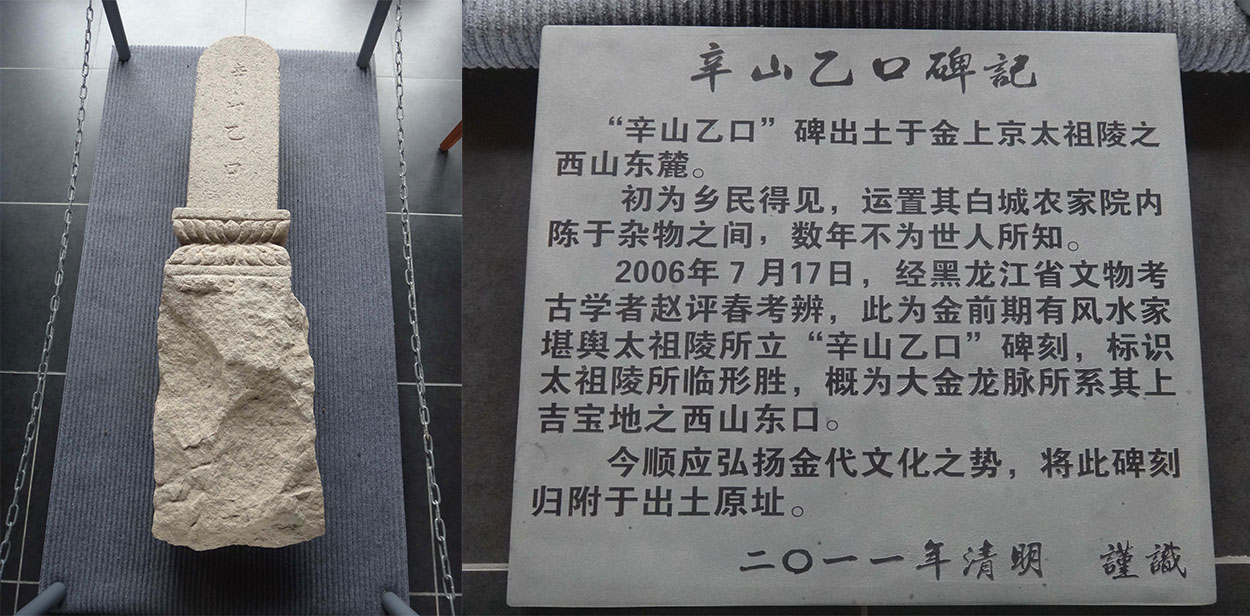 辛山乙口
辛山乙口碑記
“辛山乙口”碑出土于金上京太祖陵之
西山东麓。
初为乡民得见，运置其白城农家院内
陈于杂物之间，数年不为世人所知。
2006年7月17日，经黑龙江省文物考
古学者赵评春考辨，此为金前期有风水家
堪舆太祖陵所立“辛山乙口”碑刻，标识
太祖陵所临形胜，概为大金龙脉所系其上
吉宝地之西山东口。
今顺应弘扬金代文化之势，将此碑刻
归附于出土原址。
二〇一一年清明　謹識